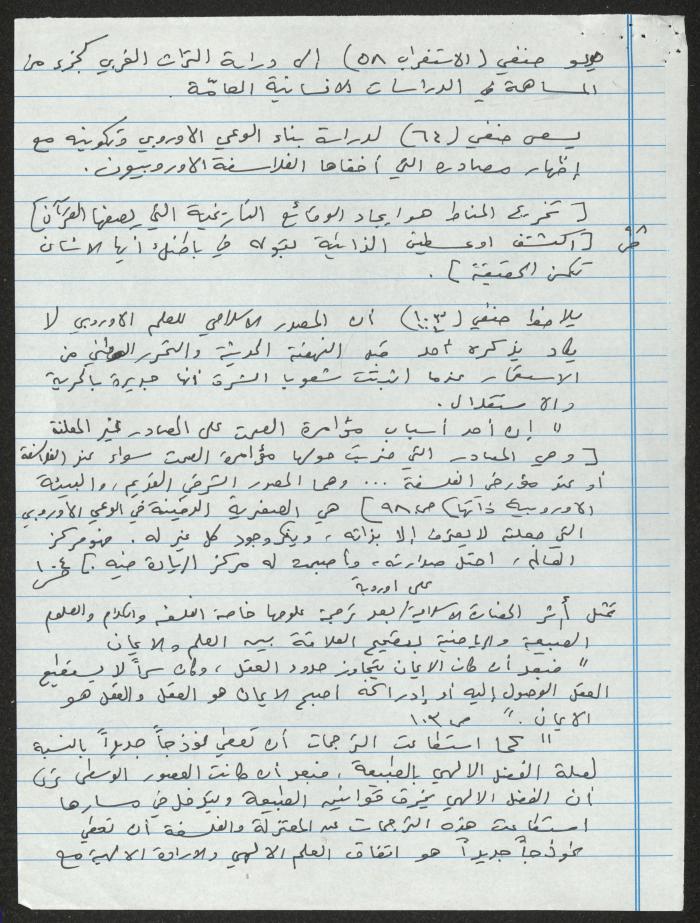 يدعو حنفي (الاستغراب ٥٨) الى دراسة التراث الغربي كجزء من
المساهمة في الدراسات الانسانية العامّة.
يسعى حنفي (٦٤) لدراسة بناء الوعي الاوروبي وتكوينه مع
إظهار مصادره التي أخفاها الفلاسفة الاوروبيون.
[تخريج المناط هو ايجاد الوقائع التاريخية التي يصفها القرآن]
[اكتشف اوغسطين الذاتية بقوله في باطنك أيها الانسان
تكمن الحقيقة].
يلاحظ حنفي (١٠٣) أن المصدر الاسلامي للعلم الاوروبي لا
يكاد يذكره أحد قبل النهضة الحديثة والتحرر الوطني من
الاستعمار عندما اثبتت شعوب الشرق أنها جديرة بالحرية
والاستقلال.
" إن أحد أسباب مؤامرة الصمت على المصادر غير المعلنة
[وهي المصادر التي ضربت حولها مؤامرة الصمت سواء عند الفلاسفة
أو عند مؤرخي الفلسفة ... وهما المصدر الشرقي القديم، والبيئة
الاوروبية ذاتها) ص ٩٨] هي العنصرية الدفينة في الوعي الاوروبي
التي جعلته لا يعترف إلا بذاته، وينكر وجود كل غير له. فهو مركز
العالم، احتل صدارته، وأصبحت له مركز الريادة فيه.] ص ١٠٤
على اوروبة
تمثل أثر الحضارة الاسلامية/ بعد ترجمة علومها خاصة الفلسفة والكلام والعلوم
الطبيعية والرياضية لتصحيح العلاقة بين العلم والايمان
" فبعد أن كان الايمان يتجاوز حدود العقل، وكان سراً لا يستطيع
العقل الوصول إليه أو إدراكه أصبح الايمان هو العقل والعقل هو
الايمان." ص ١٠٣
" كما استطاعت الترجمات أن تعطي نموذجاً جديداً بالنسبة
لصلة الفعل الالهي بالطبيعة، فبعد أن كانت العصور الوسطى ترى
أن الفعل الالهي يخرق قوانين الطبيعة ويتدخل في مسارها
استطاعت هذه الترجمات عن المعتزلة والفلسفة أن تعطي
نموذجاً جديداً هو اتفاق العلم الالهي والارادة الالهية مع